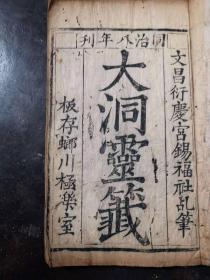 同治八年刊
文昌衍慶宮錫福社乩筆
大洞靈籤
板存螂川極樂室